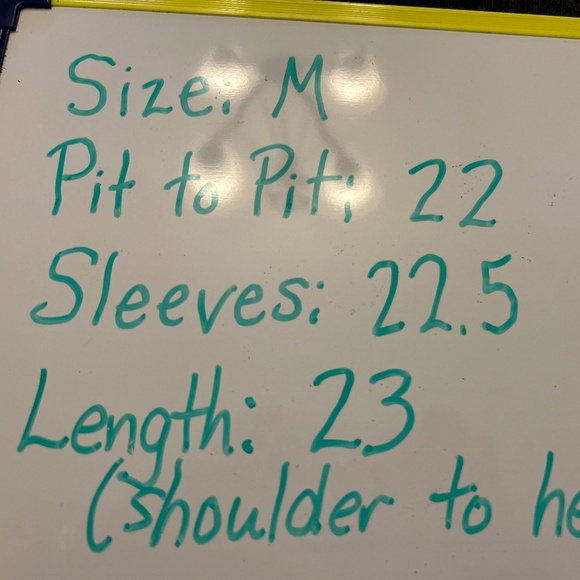 Size: M
Pit to Pit: 22
Sleeves: 22.5
Length: 23
(shoulder to he